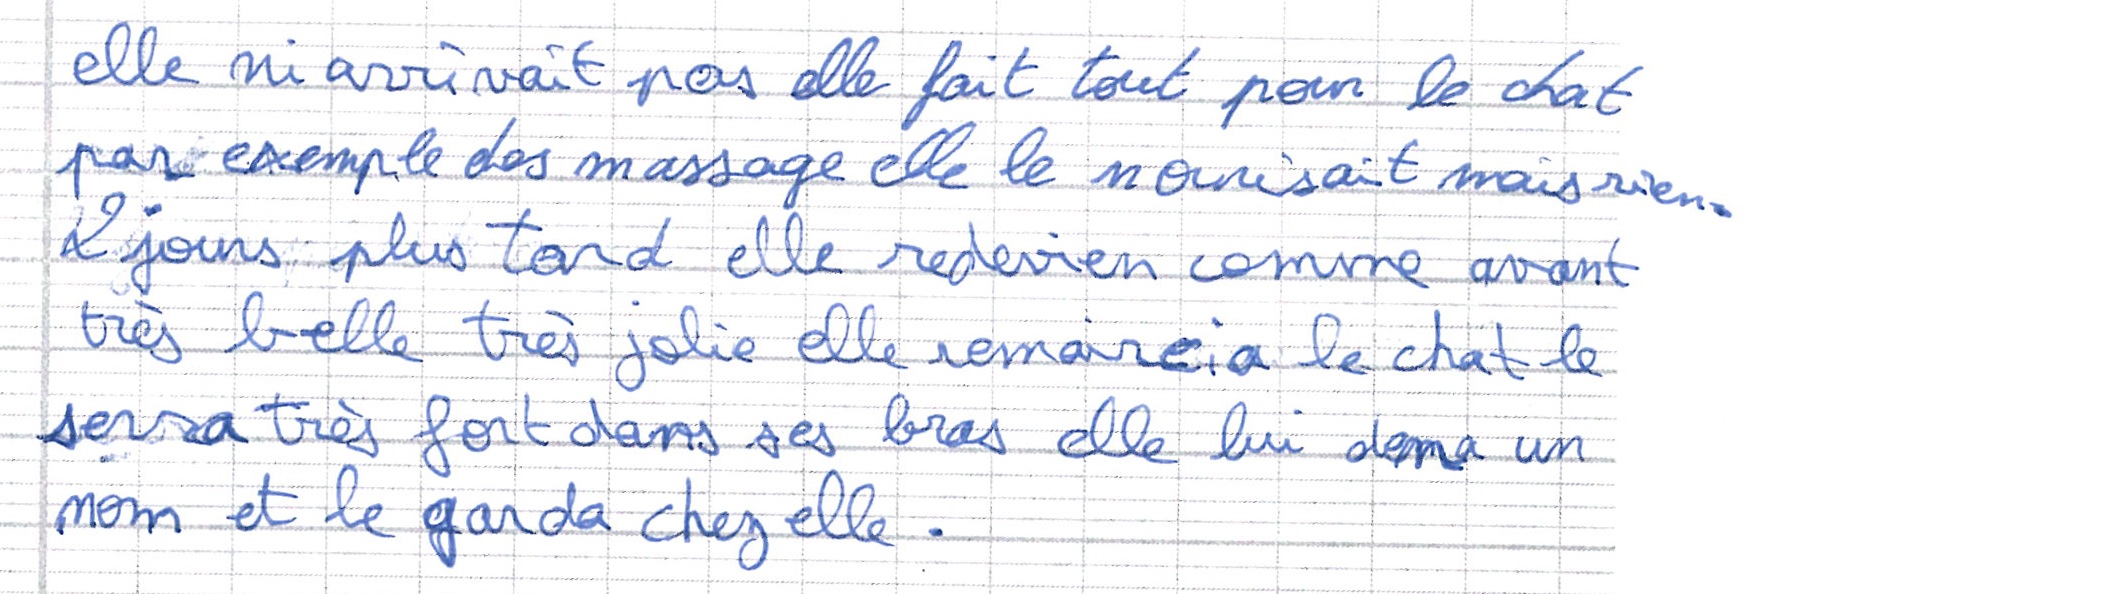 elle ni arrivait pas elle fait tout pour le chat
par exemple des massage elle le nourisait mais rien.
2 jours plus tard elle redevien comme avant
très belle très jolie elle remaircia le chat le
serra très fort dans ses bras elle lui donna un
nom et le garda chez elle.